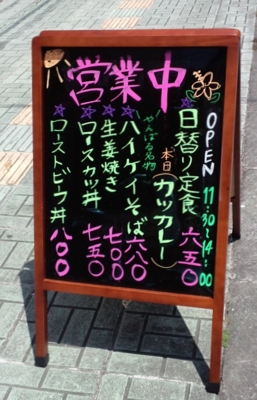 営業中
OPEN 11:30~14:00
日替り定食 六五〇
本日(カツカレー)
やんばる名物
ハイケイそば 六八〇
生姜焼き 七〇〇
ロースカツ丼 七五〇
ローストビーフ丼 八〇〇